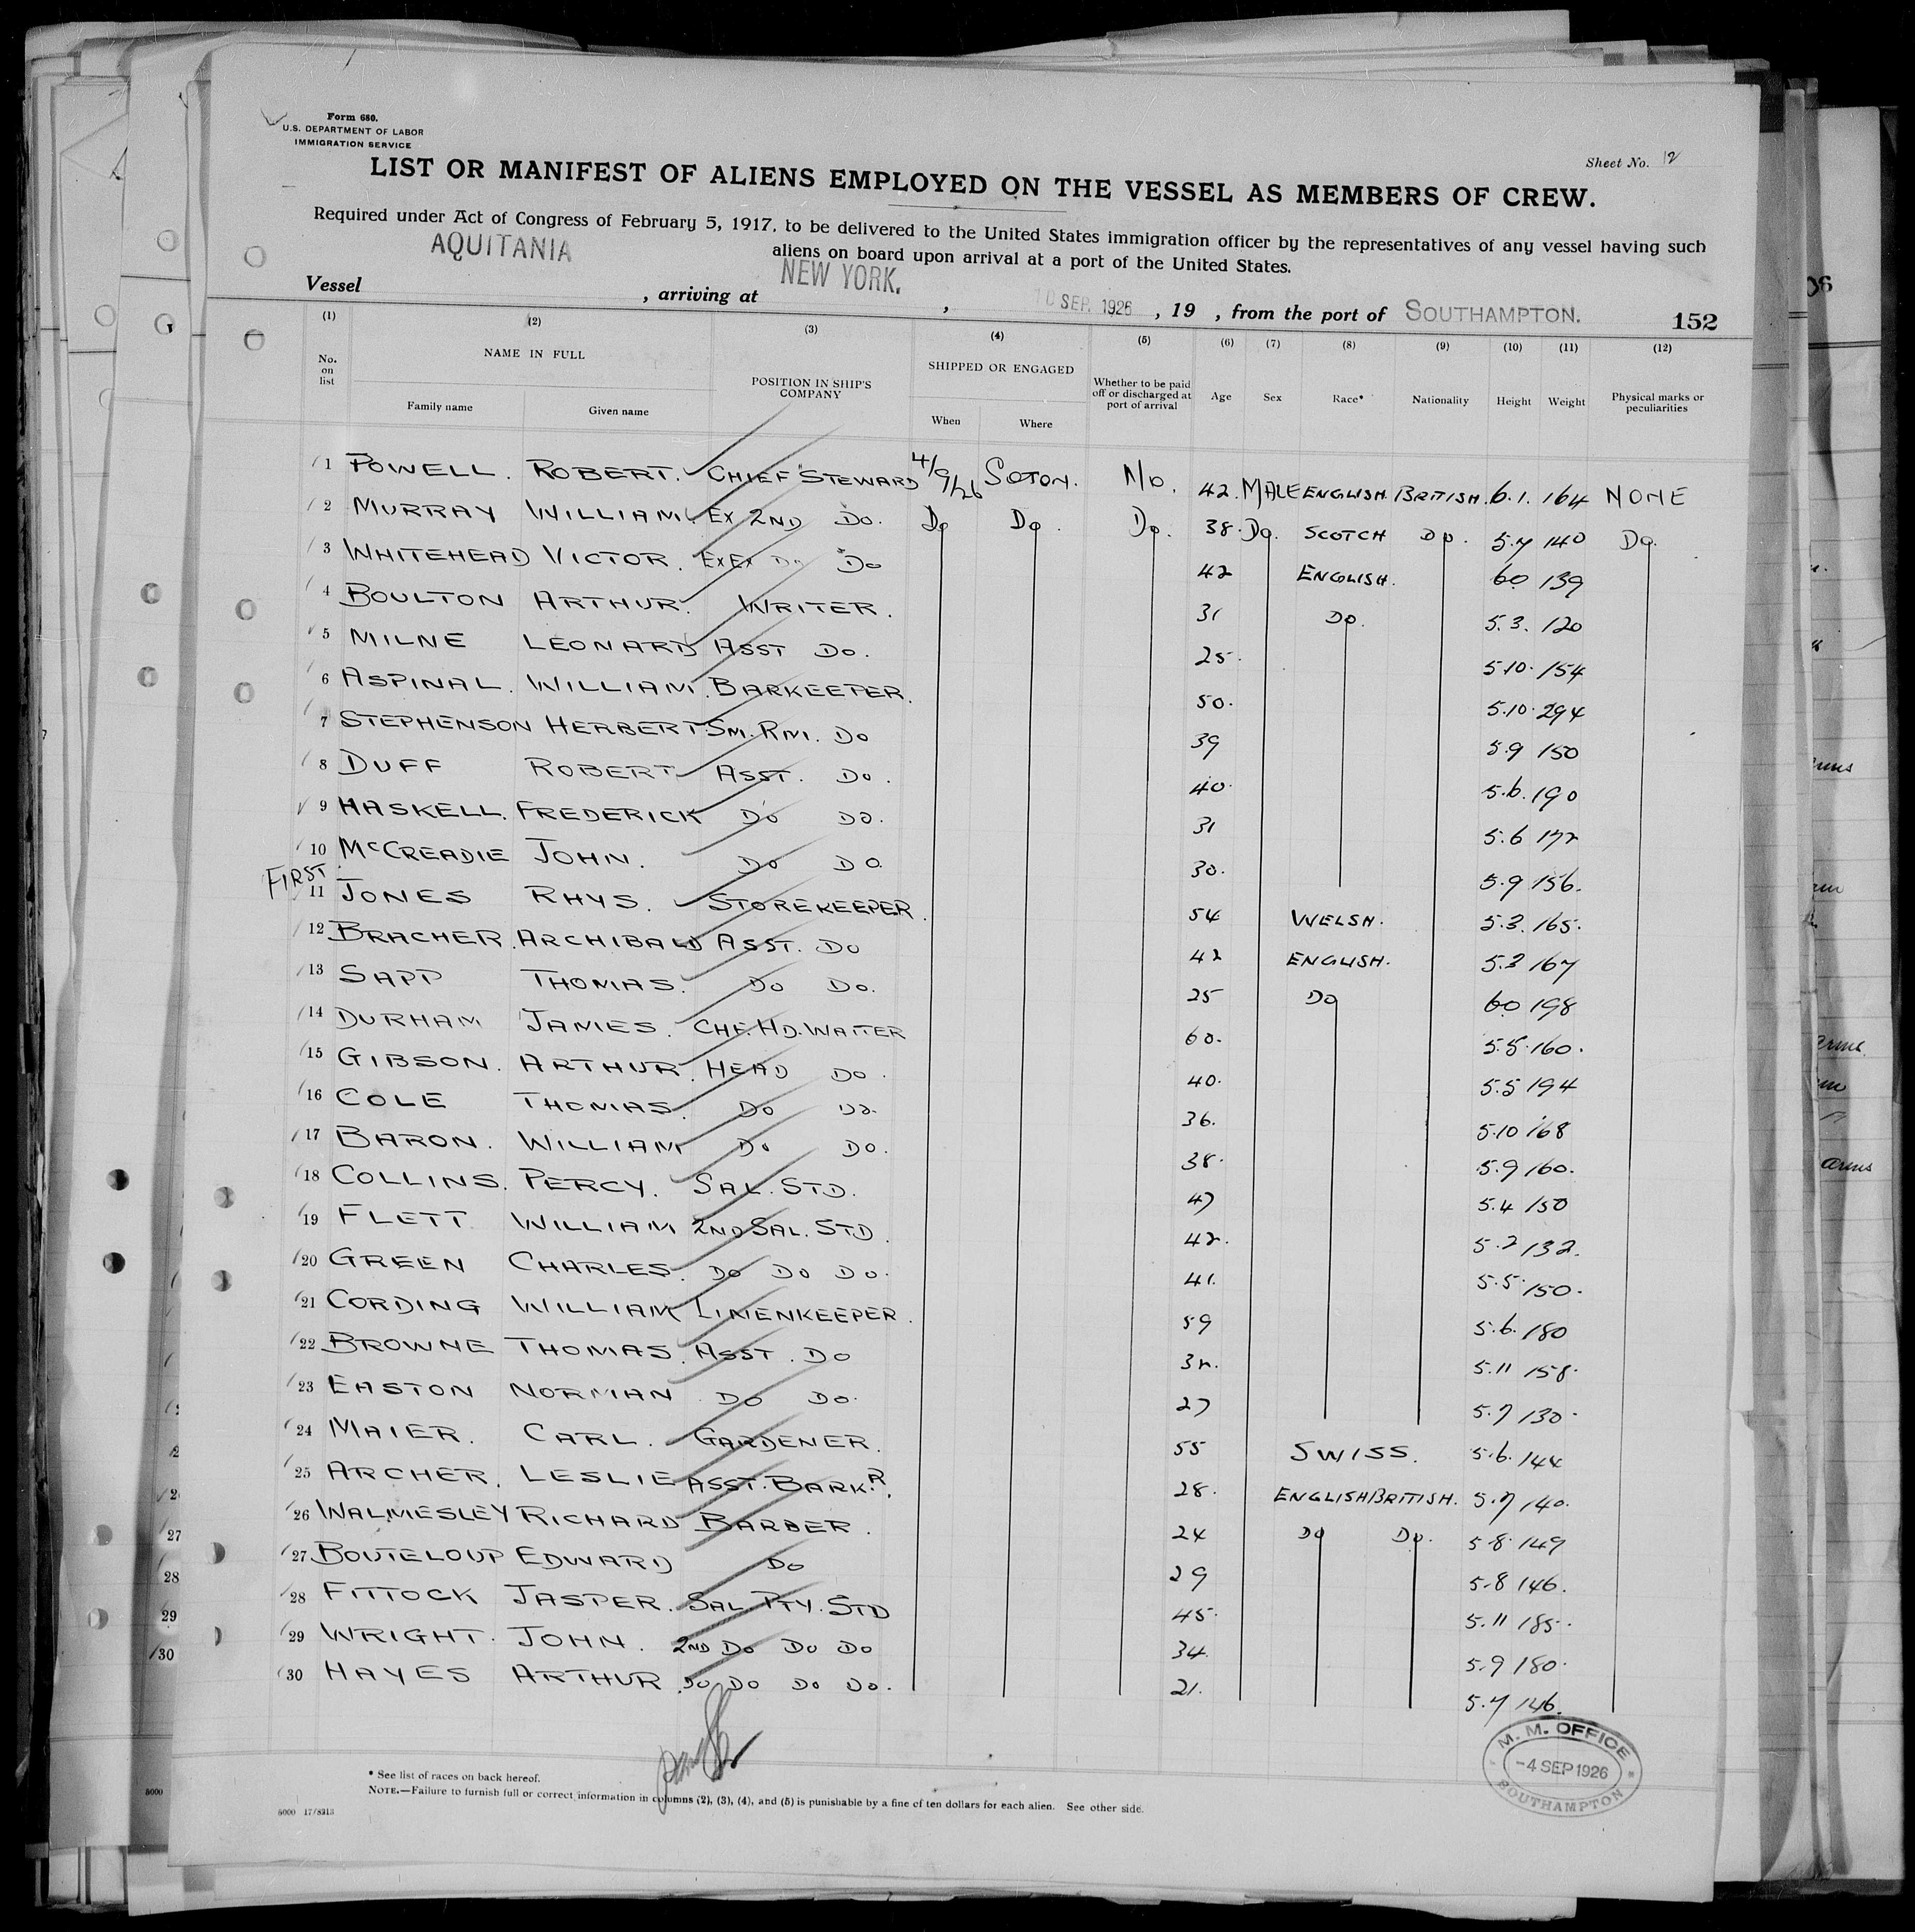 Form 680.
U.S. DEPARTMENT OF LABOR
IMMIGRATION SERVICE
Sheet No. 12
LIST OR MANIFEST OF ALIENS EMPLOYED ON THE VESSEL AS MEMBERS OF CREW.
Required under Act of Congress of February 5, 1917, to be delivered to the United States immigration officer by the representatives of any vessel having such
aliens on board upon arrival at a port of the United States.
Vessel AQUITANIA, arriving at NEW YORK., 10 SEP. 1926, 19 , from the port of SOUTHAMPTON. 152
(1) (2) (3) (4) (5) (6) (7) (8) (9) (10) (11) (12)
No. on list NAME IN FULL Family name Given name POSITION IN SHIP'S COMPANY SHIPPED OR ENGAGED When Where Whether to be paid off or discharged at port of arrival Age Sex Race* Nationality Height Weight Physical marks or peculiarities
1 POWELL. ROBERT. CHIEF STEWARD 4/9/26 SOTON. NO. 42. MALE ENGLISH BRITISH. 6.1. 164 NONE
2 MURRAY WILLIAM. EX 2ND DO. DO DO. DO. 38. DO. SCOTCH DO. 5.7 140 DO.
3 WHITEHEAD VICTOR. EXEX DO DO 42 ENGLISH. 6.0 139
4 BOULTON ARTHUR. WRITER. 31 DO. 5.3. 120
5 MILNE LEONARD ASST DO. 25. 5.10. 154
6 ASPINAL. WILLIAM. BARKEEPER. 50. 5.10. 294
7 STEPHENSON HERBERT. SM. RM. DO 39 5.9 150
8 DUFF ROBERT ASST. DO. 40. 5.6. 190
9 HASKELL. FREDERICK DO DO. 31 5.6 172
10 McCREADIE JOHN. DO DO. 30. 5.9 156.
FIRST
11 JONES RHYS. STOREKEEPER. 54 WELSH. 5.3. 165.
12 BRACHER. ARCHIBALD ASST. DO 42 ENGLISH. 5.3 167
13 SAPP THOMAS. DO DO. 25 DO 6.0 198
14 DURHAM JAMES. CHF. HD. WAITER 60. 5.5. 160.
15 GIBSON. ARTHUR. HEAD DO. 40. 5.5 194
16 COLE THOMAS. DO DO. 36. 5.10 168
17 BARON. WILLIAM DO DO. 38. 5.9 160.
18 COLLINS. PERCY. SAL. STD. 47 5.4 150
19 FLETT WILLIAM 2ND SAL. STD. 42. 5.2 132.
20 GREEN CHARLES. DO DO DO. 41. 5.5. 150.
21 CORDING WILLIAM LINENKEEPER. 59 5.6. 180
22 BROWNE THOMAS. ASST. DO 32. 5.11 158.
23 EASTON NORMAN DO DO. 27 5.7 130.
24 MAIER. CARL. GARDENER. 55 SWISS. 5.6. 144
25 ARCHER. LESLIE ASST. BARKR. 28. ENGLISH BRITISH. 5.7 140.
26 WALMESLEY RICHARD BARBER. 24 DO DO. 5.8. 149
27 BOUTELOUP EDWARD DO 29 5.8 146.
28 FITTOCK JASPER. SAL. PTY. STD 45. 5.11 185.
29 WRIGHT. JOHN. 2ND DO DO DO 34 5.9 180.
30 HAYES ARTHUR. DO DO DO DO. 21. 5.7 146.
* See list of races on back hereof.
NOTE.—Failure to furnish full or correct information in columns (2), (3), (4), and (5) is punishable by a fine of ten dollars for each alien. See other side.
M. M. OFFICE
-4 SEP 1926
SOUTHAMPTON
27
28
29
30
arms